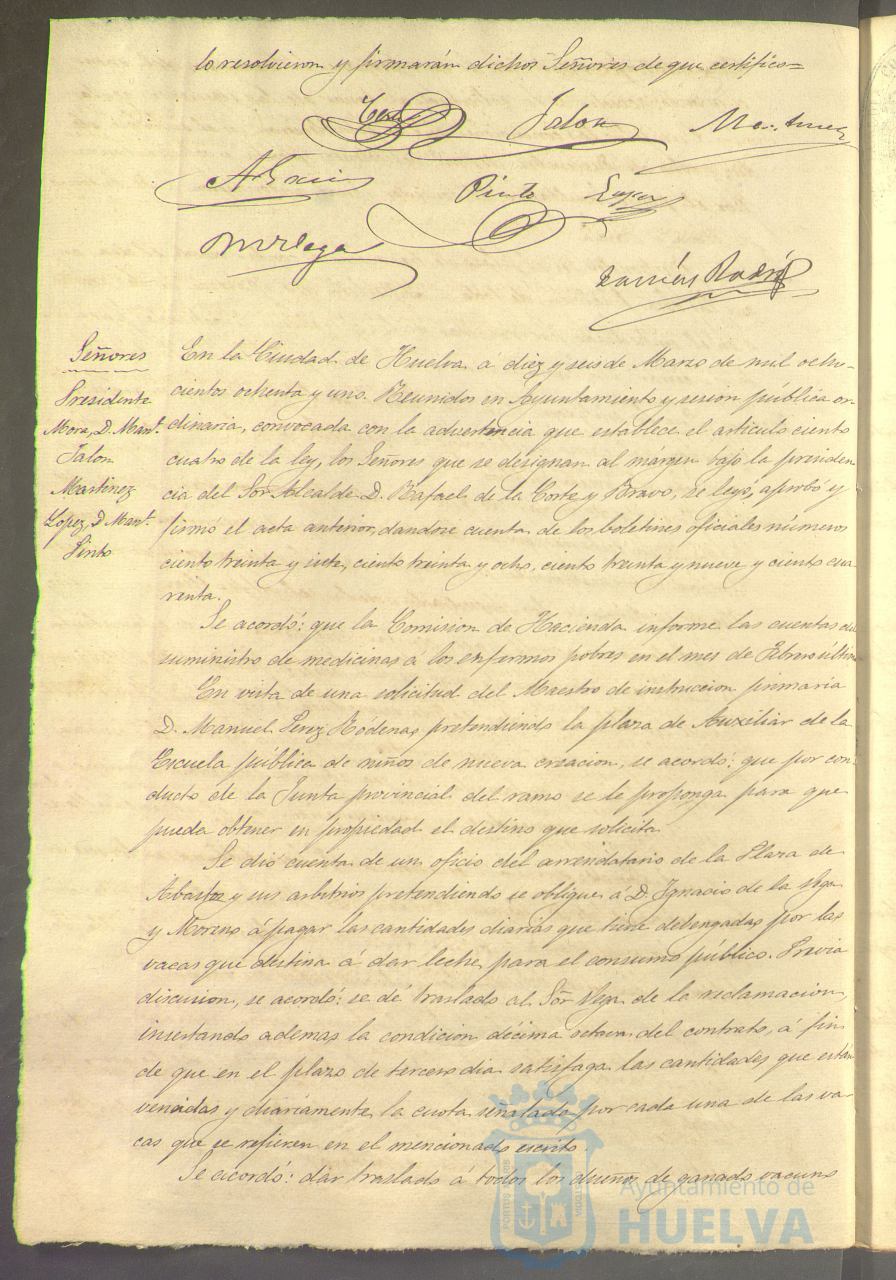 lo resolvieron y firmarán dichos Señores de que certifico=
Jalon
Martinez
Pinto Lopez
Señores
Presidente
Mora, D. Manl.
Jalon
Martinez
Lopez, D Manl.
Pinto
En la Ciudad de Huelva á diez y seis de Marzo de mil ocho-
cientos ochenta y uno. Reunidos en Ayuntamiento y sesion pública or-
dinaria, convocada con la advertencia que establece el articulo ciento
cuatro de la ley, los Señores que se designan al margen bajo la presiden
cia del Sor Alcalde D. Rafael de la Corte y Bravo, se leyó, aprobó y
firmó el acta anterior, dandose cuenta de los boletines oficiales números
ciento treinta y siete, ciento treinta y ocho, ciento treinta y nueve y ciento cua
renta.
Se acordó: que la Comision de Hacienda informe las cuentas del
suministro de medicinas á los enfermos pobres en el mes de Febrero último
En vista de una solicitud del Maestro de instruccion primaria
D. Manuel Perez Ródenas pretendiendo la plaza de Auxiliar de la
Escuela pública de niños de nueva creacion, se acordó: que por con
ducto de la Junta provincial del ramo se le proponga para que
pueda obtener en propiedad el destino que solicita.
Se dió cuenta de un oficio del arrendatario de la Plaza de
Abastos y sus arbitrios pretendiendo se obligue á D. Ignacio de la Vega
y Moreno á pagar las cantidades diarias que tiene debengadas por las
vacas que destina á dar leche para el consumo público. Previa
discusion, se acordó: se dé traslado al Sor Vega de la reclamacion,
insertando ademas la condicion décima octava del contrato, á fin
de que en el plazo de tercero dia satisfaga las cantidades que están
vencidas y diariamente la cuota señalada por cada una de las va-
cas que se refieren en el mencionado escrito.
Se acordó: dar traslado á todos los dueños de ganado vacuno
Ayuntamiento de
HUELVA